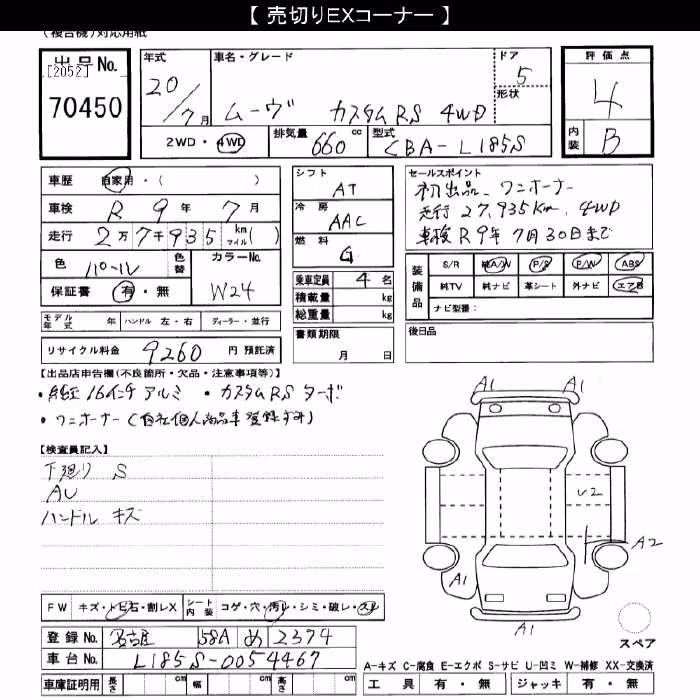 【 売切りEXコーナー 】
(複合機)対応用紙
出品No.
[2052]
70450
年式
20/7月
車名・グレード
ムーヴ カスタムRS 4WD
ドア
5
形状
評価点
4
内装
B
2WD・4WD
排気量
660cc
型式
CBA-L185S
車歴
自家用・( )
車検
R 9年 7月
走行
2万7千935 km マイル( )
色
パール
色替
カラーNo.
W24
保証書 有・無
モデル年式 年
ハンドル 左・右
ディーラー・並行
リサイクル料金 9260 円 預託済
シフト
AT
冷房
AAC
燃料
G
乗車定員 4 名
積載量 kg
総重量 kg
書類期限
月 日
セールスポイント
初出品、ワンオーナー
走行 27,935Km、4WD
車検 R9年 7月30日まで
装備品
S/R 純A/W P/S P/W ABS
純TV 純ナビ 革シート 外ナビ エアB
ナビ型番:
後日品
【出品店申告欄(不良箇所・欠品・注意事項等)】
・純正16インチアルミ ・カスタムRS ターボ
・ワンオーナー(自社個人商品車登録すみ)
【検査員記入】
下廻り S
AU
ハンドル キズ
FW キズ・トビ石・割レX
シート内装 コゲ・穴・汚レ・シミ・破レ・スレ
登録No. 名古屋 58A め 2374
車台No. L185S-0054467
車庫証明用 長さ cm 幅 cm 高さ cm
A1
A1
U2
A2
A1
A1
スペア
A-キズ C-腐食 E-エクボ S-サビ U-凹ミ W-補修 XX-交換済
工具 有・無 ジャッキ 有・無